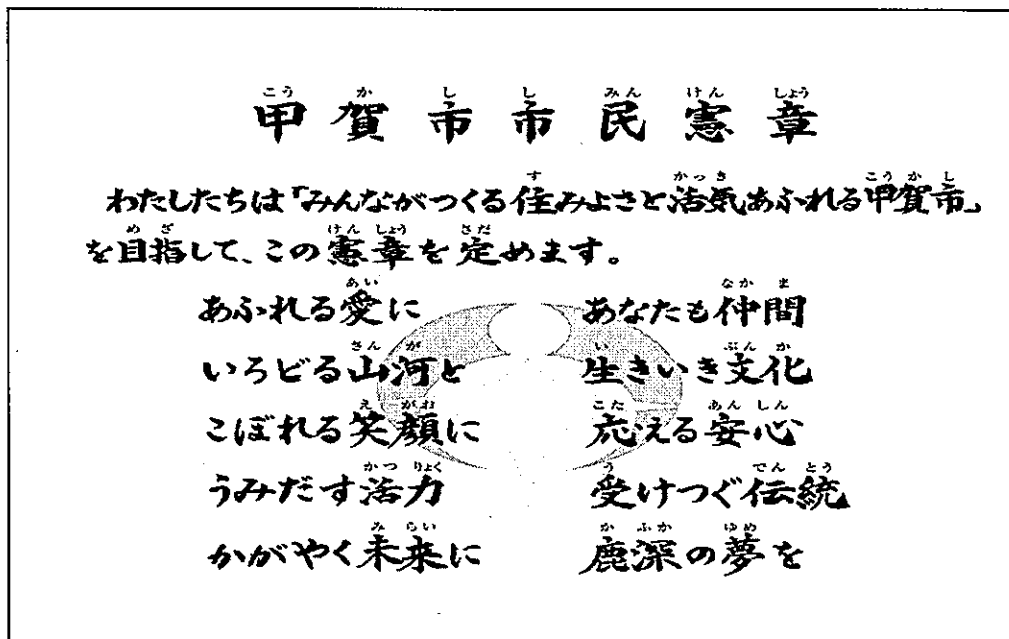 甲賀市市民憲章
わたしたちは「みんながつくる住みよさと活気あふれる甲賀市」
を目指して、この憲章を定めます。
あふれる愛に　あなたも仲間
いろどる山河と　生きいき文化
こぼれる笑顔に　応える安心
うみだす活力　受けつぐ伝統
かがやく未来に　鹿深の夢を